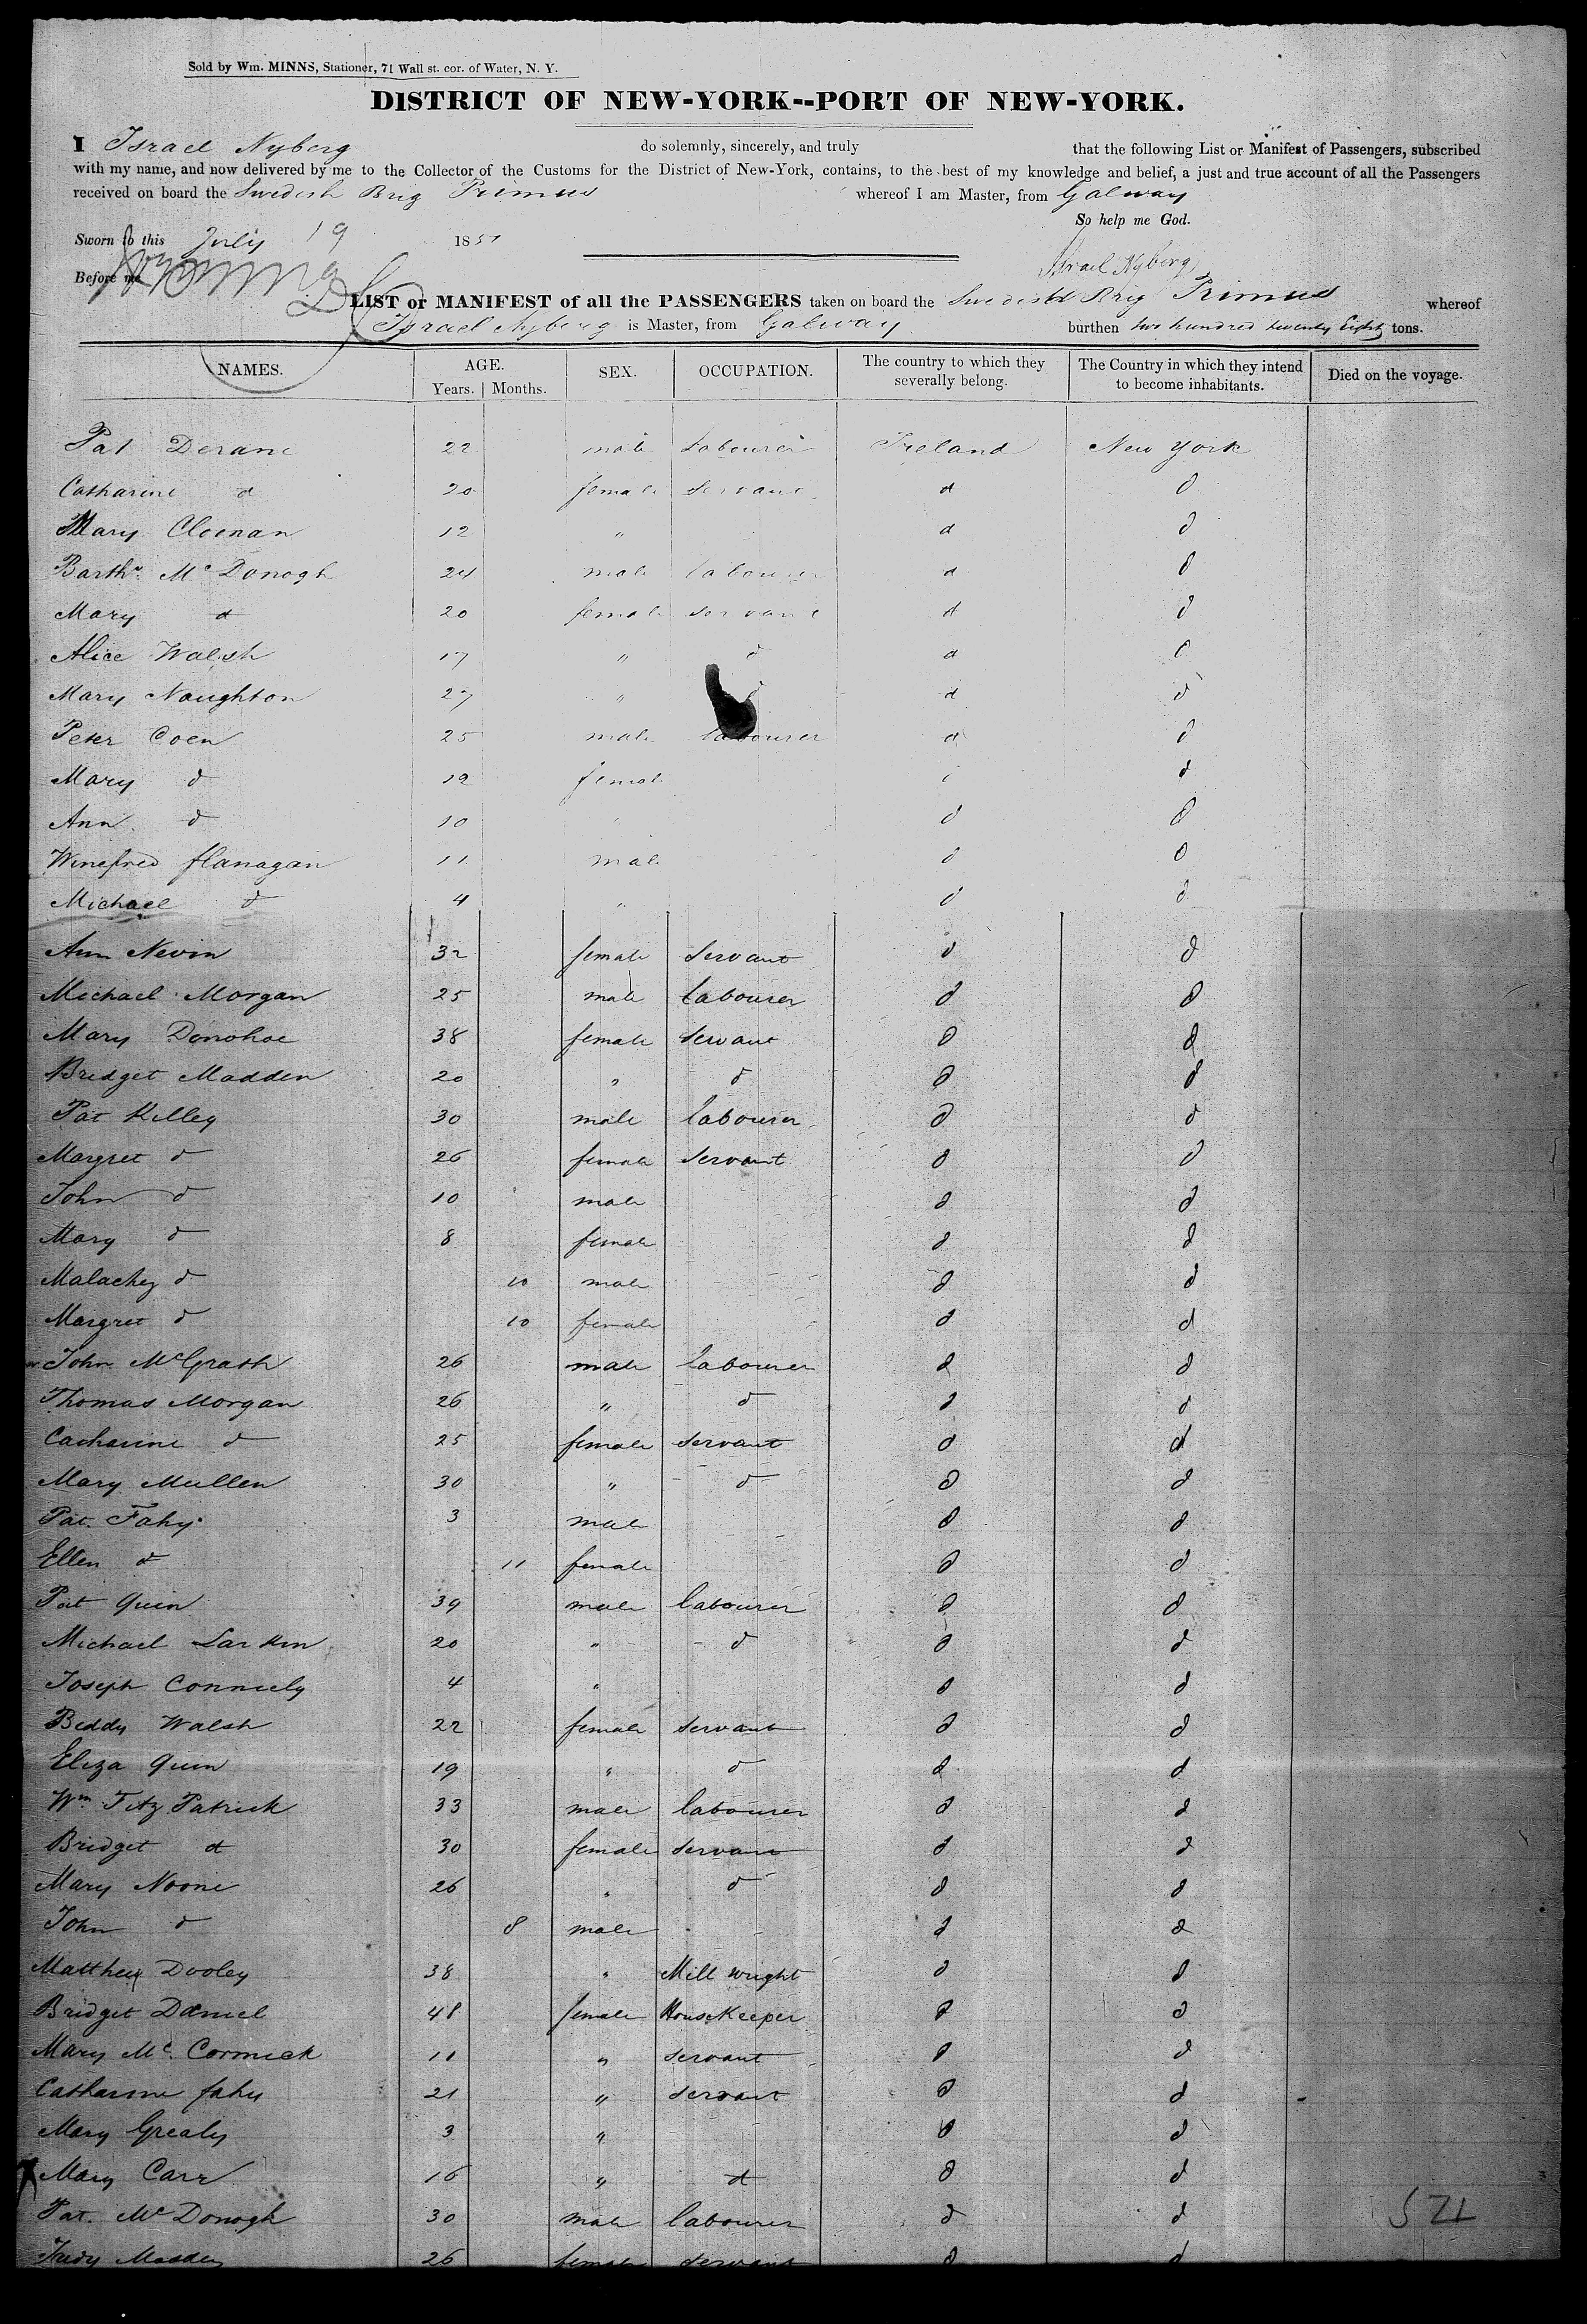 Sold by Wm. MINNS, Stationer, 71 Wall st. cor. of Water, N. Y.
DISTRICT OF NEW-YORK--PORT OF NEW-YORK.
I Israel Nyberg do solemnly, sincerely, and truly that the following List or Manifest of Passengers, subscribed
with my name, and now delivered by me to the Collector of the Customs for the District of New-York, contains, to the best of my knowledge and belief, a just and true account of all the Passengers
received on board the Swedish Brig Primus whereof I am Master, from Galway
So help me God.
Sworn to this July 19 1851
Israel Nyberg
Before me
LIST or MANIFEST of all the PASSENGERS taken on board the Swedish Brig Primus whereof
Israel Nyberg is Master, from Galway burthen two hundred twenty Eight tons.
NAMES. AGE. Years. Months. SEX. OCCUPATION. The country to which they severally belong. The Country in which they intend to become inhabitants. Died on the voyage.
Pat Derane 22 male Labourer Ireland New York
Catharine d 20 female servant d d
Mary Cloenan 12 " d d
Barthw. Mc Donogh 24 male labourer d d
Mary d 20 female servant d d
Alice Walsh 17 " d d d
Mary Naughton 27 " d d d
Peter Coen 25 male labourer d d
Mary d 12 female d d
Ann d 10 " d d
Winefred flanagan 11 male d d
Michael d 4 " d d
Ann Nevin 32 female servant d d
Michael Morgan 25 male labourer d d
Mary Donohoe 38 female servant d d
Bridget Madden 20 " d d d
Pat Killey 30 male labourer d d
Margret d 26 female servant d d
John d 10 male d d
Mary d 8 female d d
Malachy d 10 male d d
Margret d 10 female d d
John McGrath 26 male labourer d d
Thomas Morgan 26 " d d d
Catharine d 25 female servant d d
Mary Mullen 30 " d d d
Pat. Fahy 3 male d d
Ellen d 11 female d d
Pat Quin 39 male labourer d d
Michael Larkin 20 " d d d
Joseph Conniely 4 " d d
Biddy Walsh 22 female servant d d
Eliza Quin 19 " d d d
Wm Fitz Patrick 33 male labourer d d
Bridget d 30 female servant d d
Mary Noone 26 " d d d
John d 8 male d d
Matthew Dooley 38 " Mill wright d d
Bridget Daniel 48 female HouseKeeper d d
Mary Mc. Cormick 11 " servant d d
Catharine fahy 21 " servant d d
Mary Grealy 3 " d d
Mary Carr 16 " d d d
Pat. Mc Donogh 30 male labourer d d
571
Madden 26 female servant d d